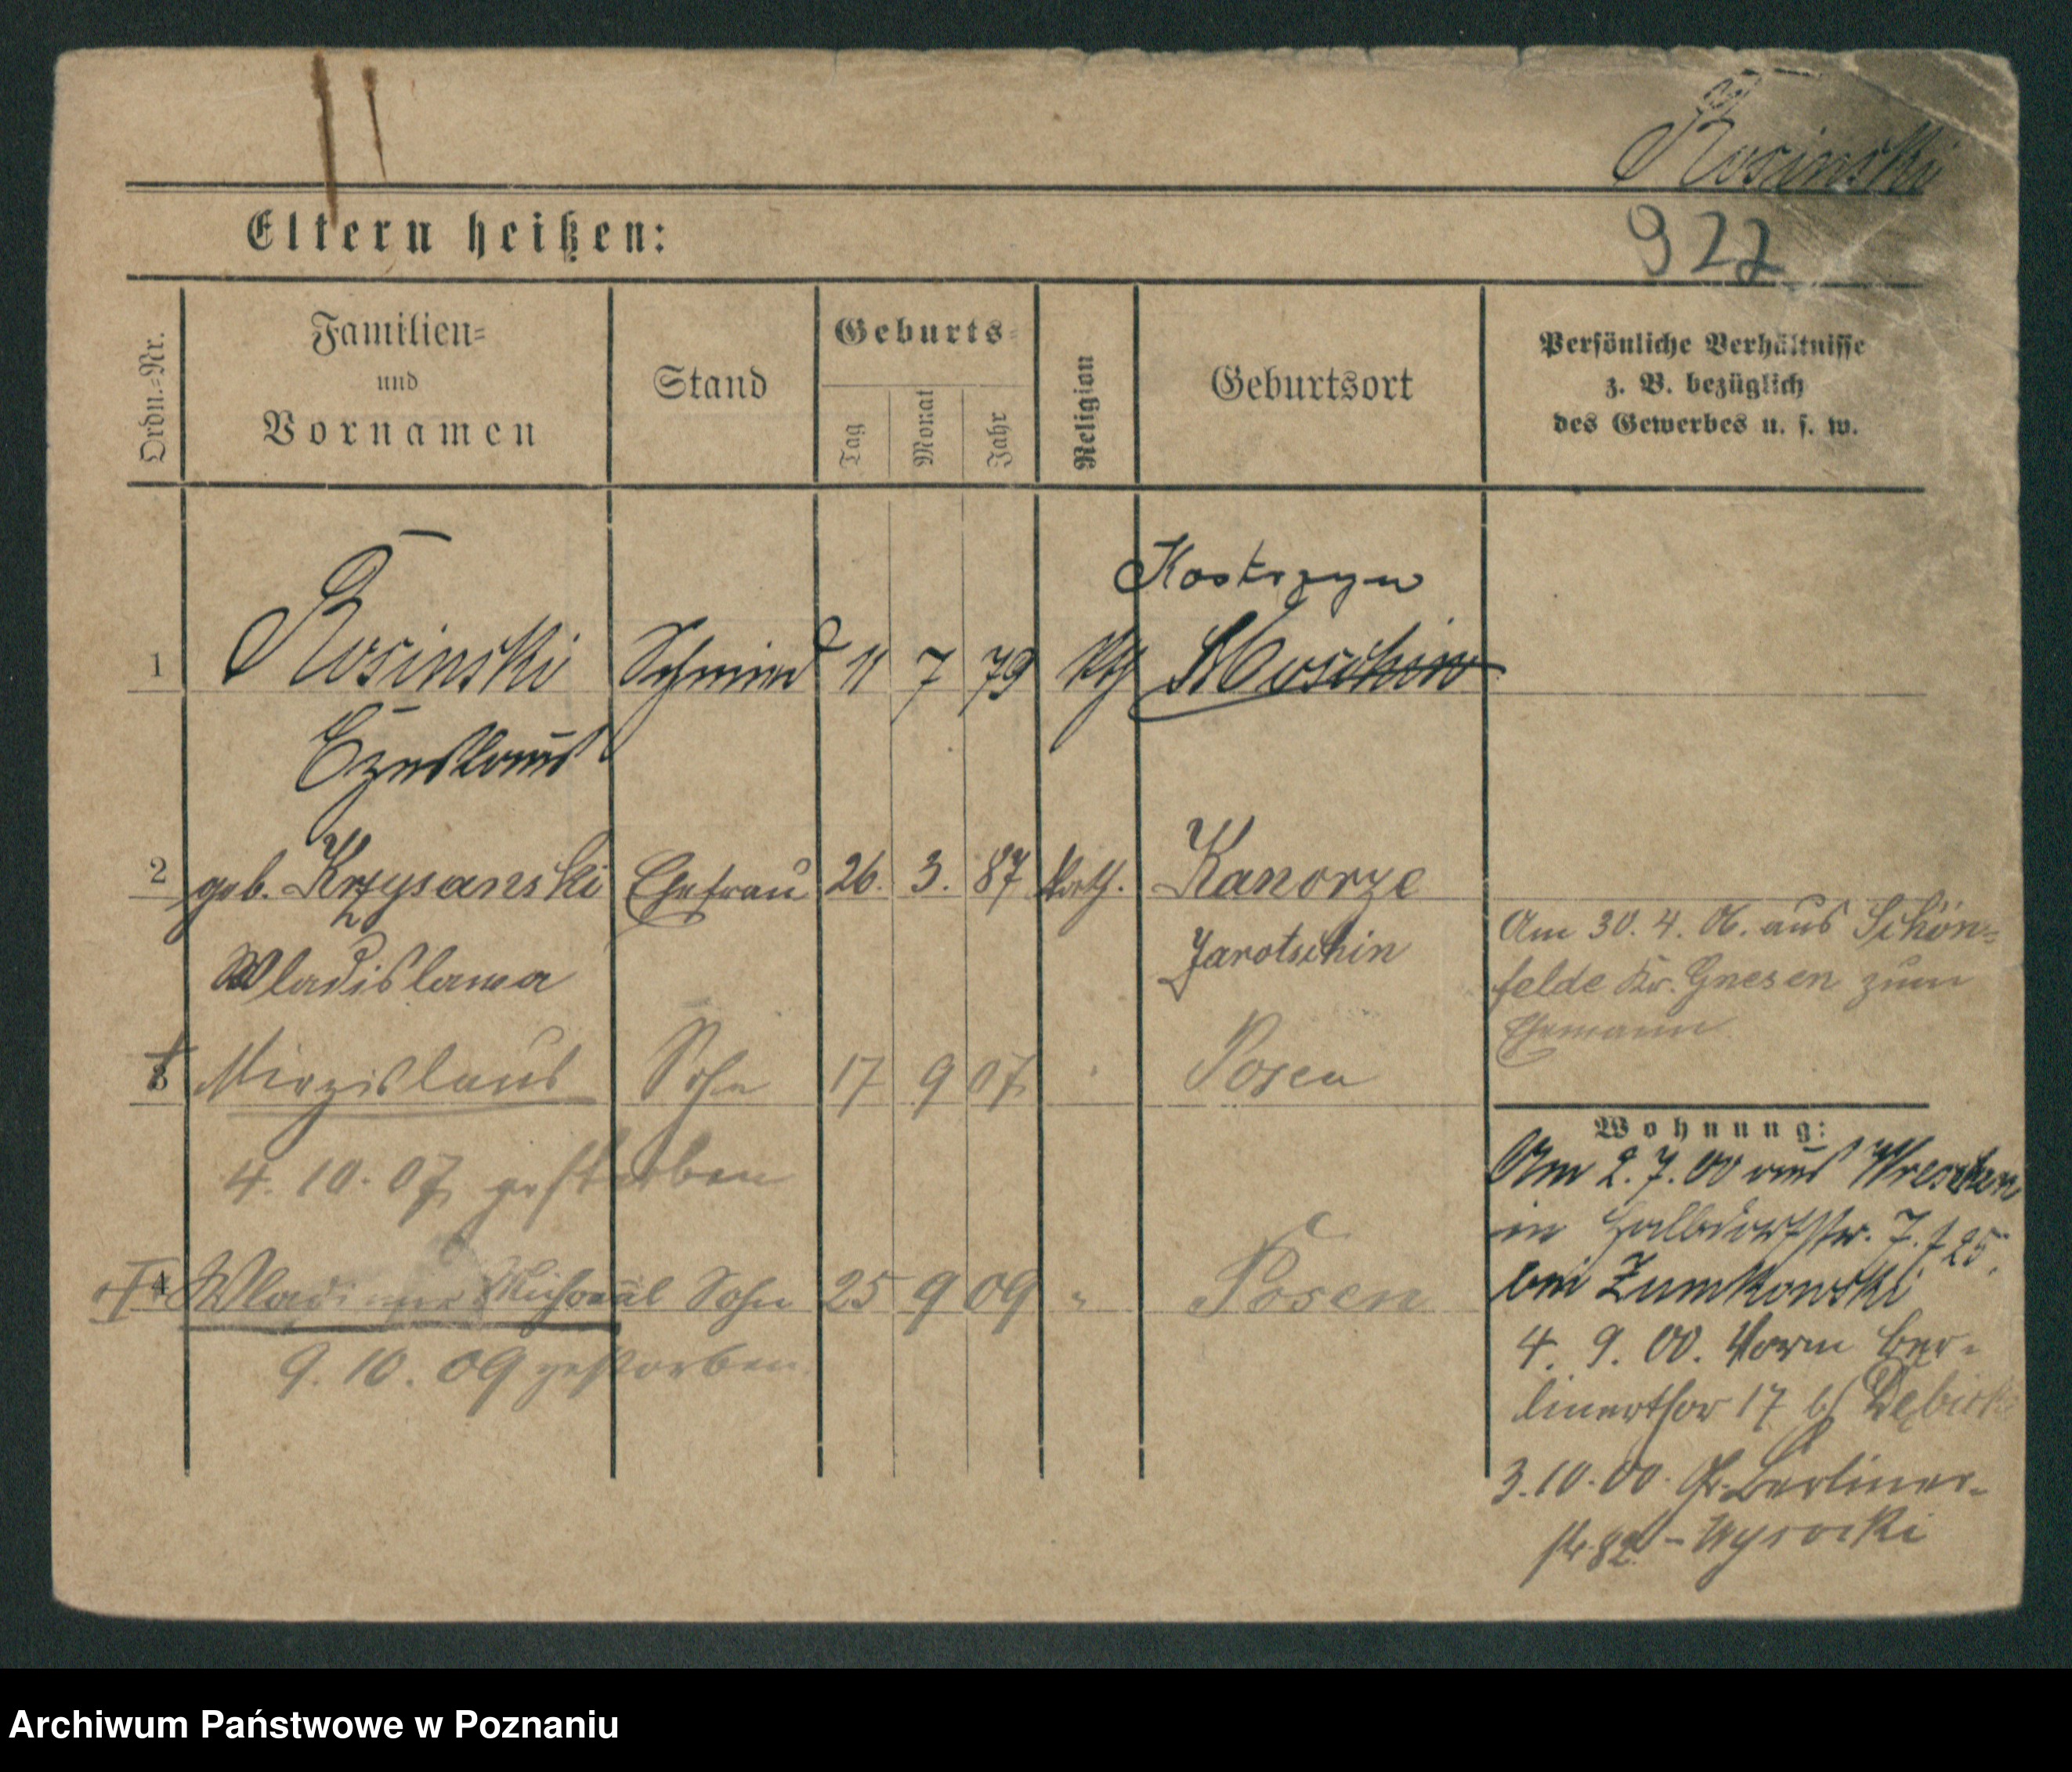 Rosinski
922
Eltern heißen:
Ordn.-Nr.
Familien-
und
Vornamen
Stand
Geburts-
Tag
Monat
Jahr
Religion
Geburtsort
Persönliche Verhältnisse
z. B. bezüglich
des Gewerbes u. s. w.
Kostrzyn
1 Rosinski Schmied 11 7 79 kth Moschin
Czeslaus
2 geb. Krzysanski Ehefrau 26. 3. 87 kath. Kanorze
Wladislawa Jarotschin
Am 30. 4. 06. aus Schön-
felde Kr. Gnesen zum
Ehemann
3 Miezislaus Sohn 17 9 07 Posen
4. 10. 07 gestorben
4 Michael Sohn 25 9 09 " Posen
9. 10. 09 gestorben
Wohnung:
Am 2. 7. 00 aus Wreschen
in Halbdorfstr. 7. 
bei Zumkowski
4. 9. 00. Vorm Ber-
linerthor 17 b/
3. 10. 00. Gr. Berliner-
str. 82 - Wysocki
Archiwum Państwowe w Poznaniu